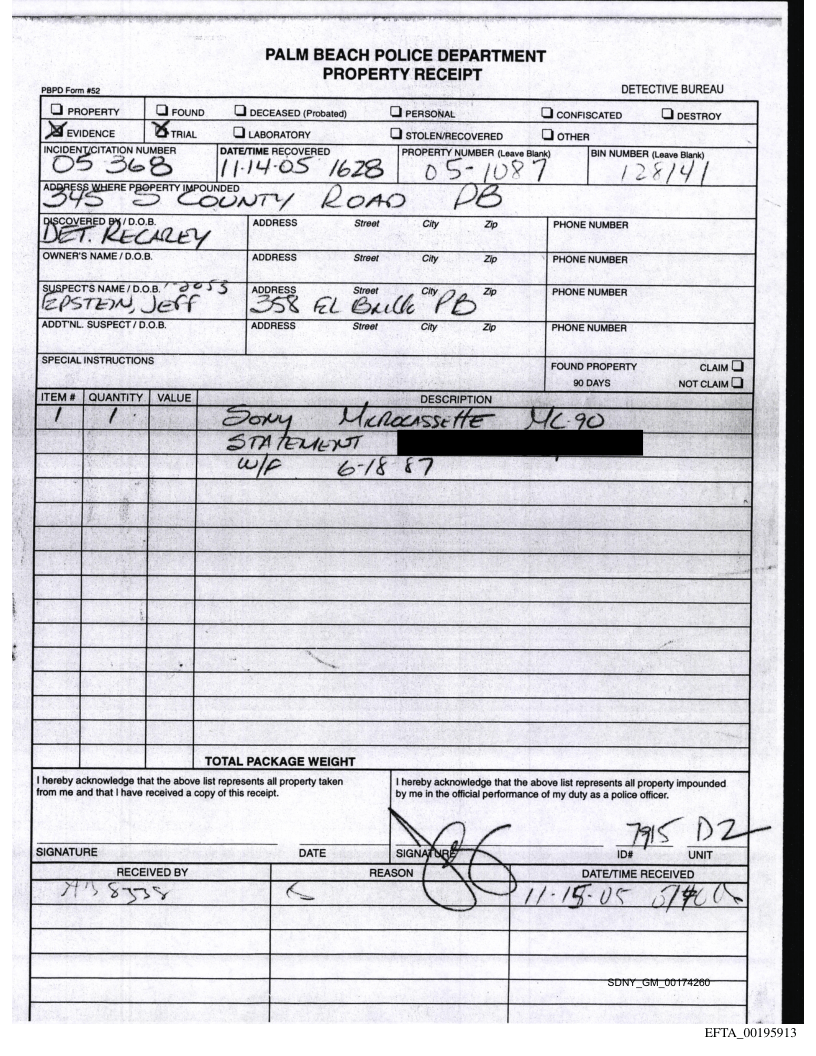 PALM BEACH POLICE DEPARTMENT
PROPERTY RECEIPT
PBPD Form #52
DETECTIVE BUREAU
PROPERTY FOUND DECEASED (Probated) PERSONAL CONFISCATED DESTROY
EVIDENCE TRIAL LABORATORY STOLEN/RECOVERED OTHER
INCIDENT/CITATION NUMBER DATE/TIME RECOVERED PROPERTY NUMBER (Leave Blank) BIN NUMBER (Leave Blank)
05 368 11-14-05 1628 05-1087 128141
ADDRESS WHERE PROPERTY IMPOUNDED
345 S COUNTY ROAD PB
DISCOVERED BY / D.O.B. ADDRESS Street City Zip PHONE NUMBER
DET. RECAREY
OWNER'S NAME / D.O.B. ADDRESS Street City Zip PHONE NUMBER
SUSPECT'S NAME / D.O.B. ADDRESS Street City Zip PHONE NUMBER
EPSTEIN, JEFF 358 EL Brillo PB
ADDT'NL. SUSPECT / D.O.B. ADDRESS Street City Zip PHONE NUMBER
SPECIAL INSTRUCTIONS
FOUND PROPERTY CLAIM
90 DAYS NOT CLAIM
ITEM # QUANTITY VALUE DESCRIPTION
1 1 SONY MICROCASSETTE MC-90
STATEMENT
W/F 6-18-87
TOTAL PACKAGE WEIGHT
I hereby acknowledge that the above list represents all property taken
from me and that I have received a copy of this receipt.
I hereby acknowledge that the above list represents all property impounded
by me in the official performance of my duty as a police officer.
7915 D2
SIGNATURE DATE SIGNATURE ID# UNIT
RECEIVED BY REASON DATE/TIME RECEIVED
8338 11-15-05
SDNY_GM_00174260
EFTA_00195913